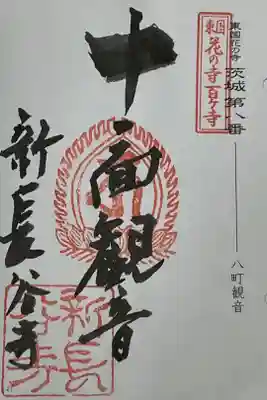 東国花の寺 茨城第八番
八町観音
東国
花の寺百ヶ寺
十一面観音
新長谷寺
新長
谷寺